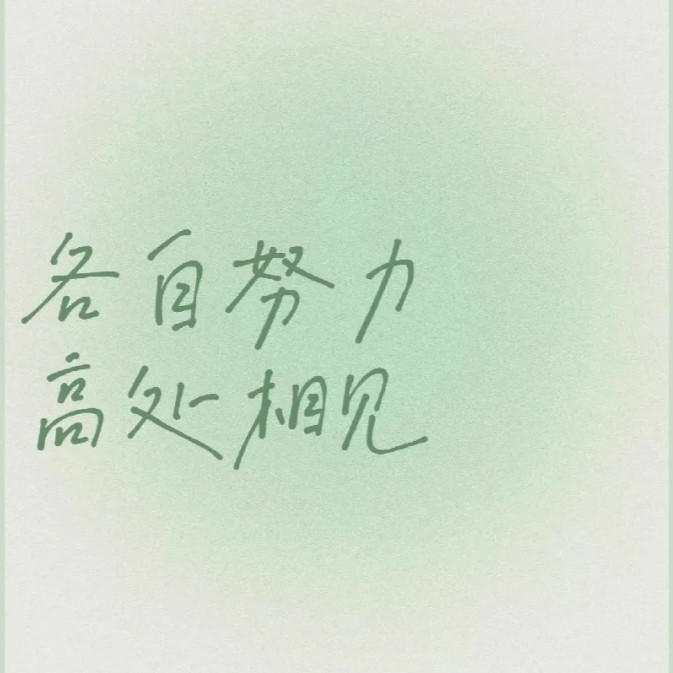 各自努力
高处相见